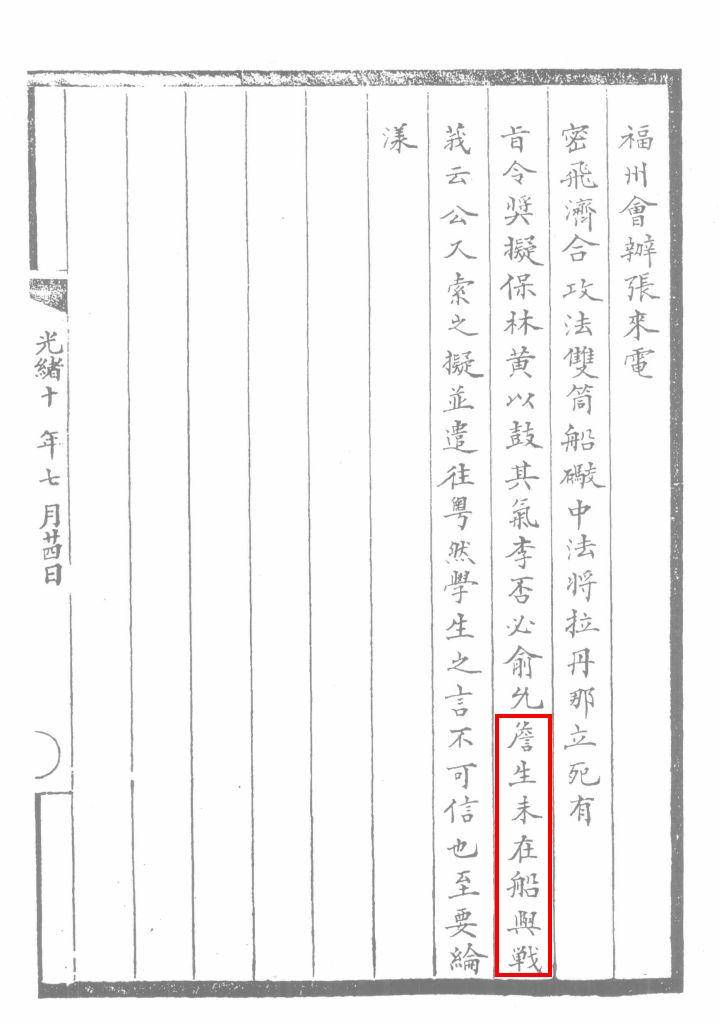 福州會辦張來電
密飛濟合攻法雙筒船礮中法將拉丹那立死有
旨令奬擬保林黃以鼓其氣李否必俞允詹生未在船與戰
莪云公又索之擬並遣往粵然學生之言不可信也至要綸
漾
光緒十年七月廿四日